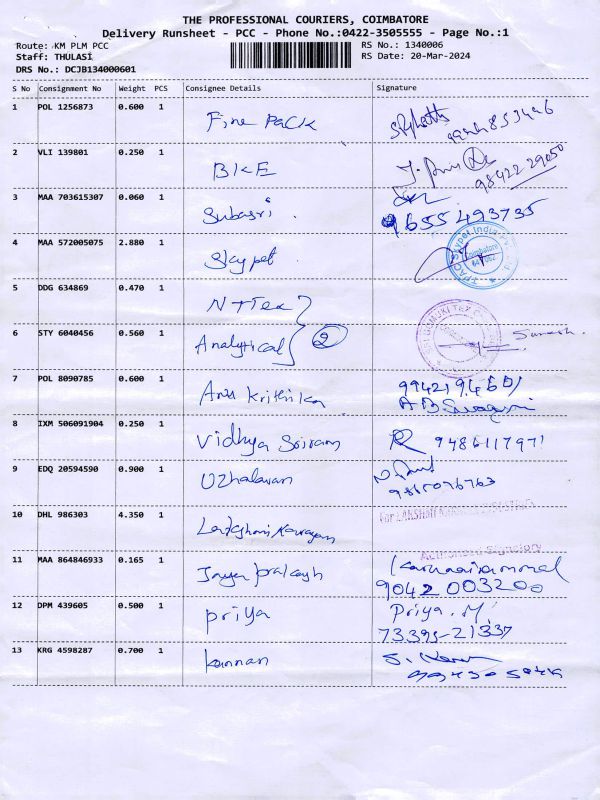 THE PROFESSIONAL COURIERS, COIMBATORE
Delivery Runsheet - PCC - Phone No.:0422-3505555 - Page No.:1
Route: KM PLM PCC
RS No.: 1340006
Staff: THULASI
RS Date: 20-Mar-2024
DRS No.: DCJB134000601
S No Consignment No Weight PCS Consignee Details Signature
1 POL 1256873 0.600 1 Fine Pack
2 VLI 139801 0.250 1 BKE 98422 29050
3 MAA 703615307 0.060 1 Subasri 9655493735
4 MAA 572005075 2.880 1 Skypet
5 DDG 634869 0.470 1 NTTex
6 STY 6040456 0.560 1 Analytical 2 Suresh.
7 POL 8090785 0.600 1 Anu Krithika
8 IXM 506091904 0.250 1 Vidhya Sriram 9486117971
9 EDQ 20594590 0.900 1 Uzhalavan
10 DHL 986303 4.350 1 For LAKSHMI
Authorised Signatory
11 MAA 864846933 0.165 1 Jayaprakash
9042003200
12 DPM 439605 0.500 1 Priya Priya.M
73395-21337
13 KRG 4598287 0.700 1 Kannan